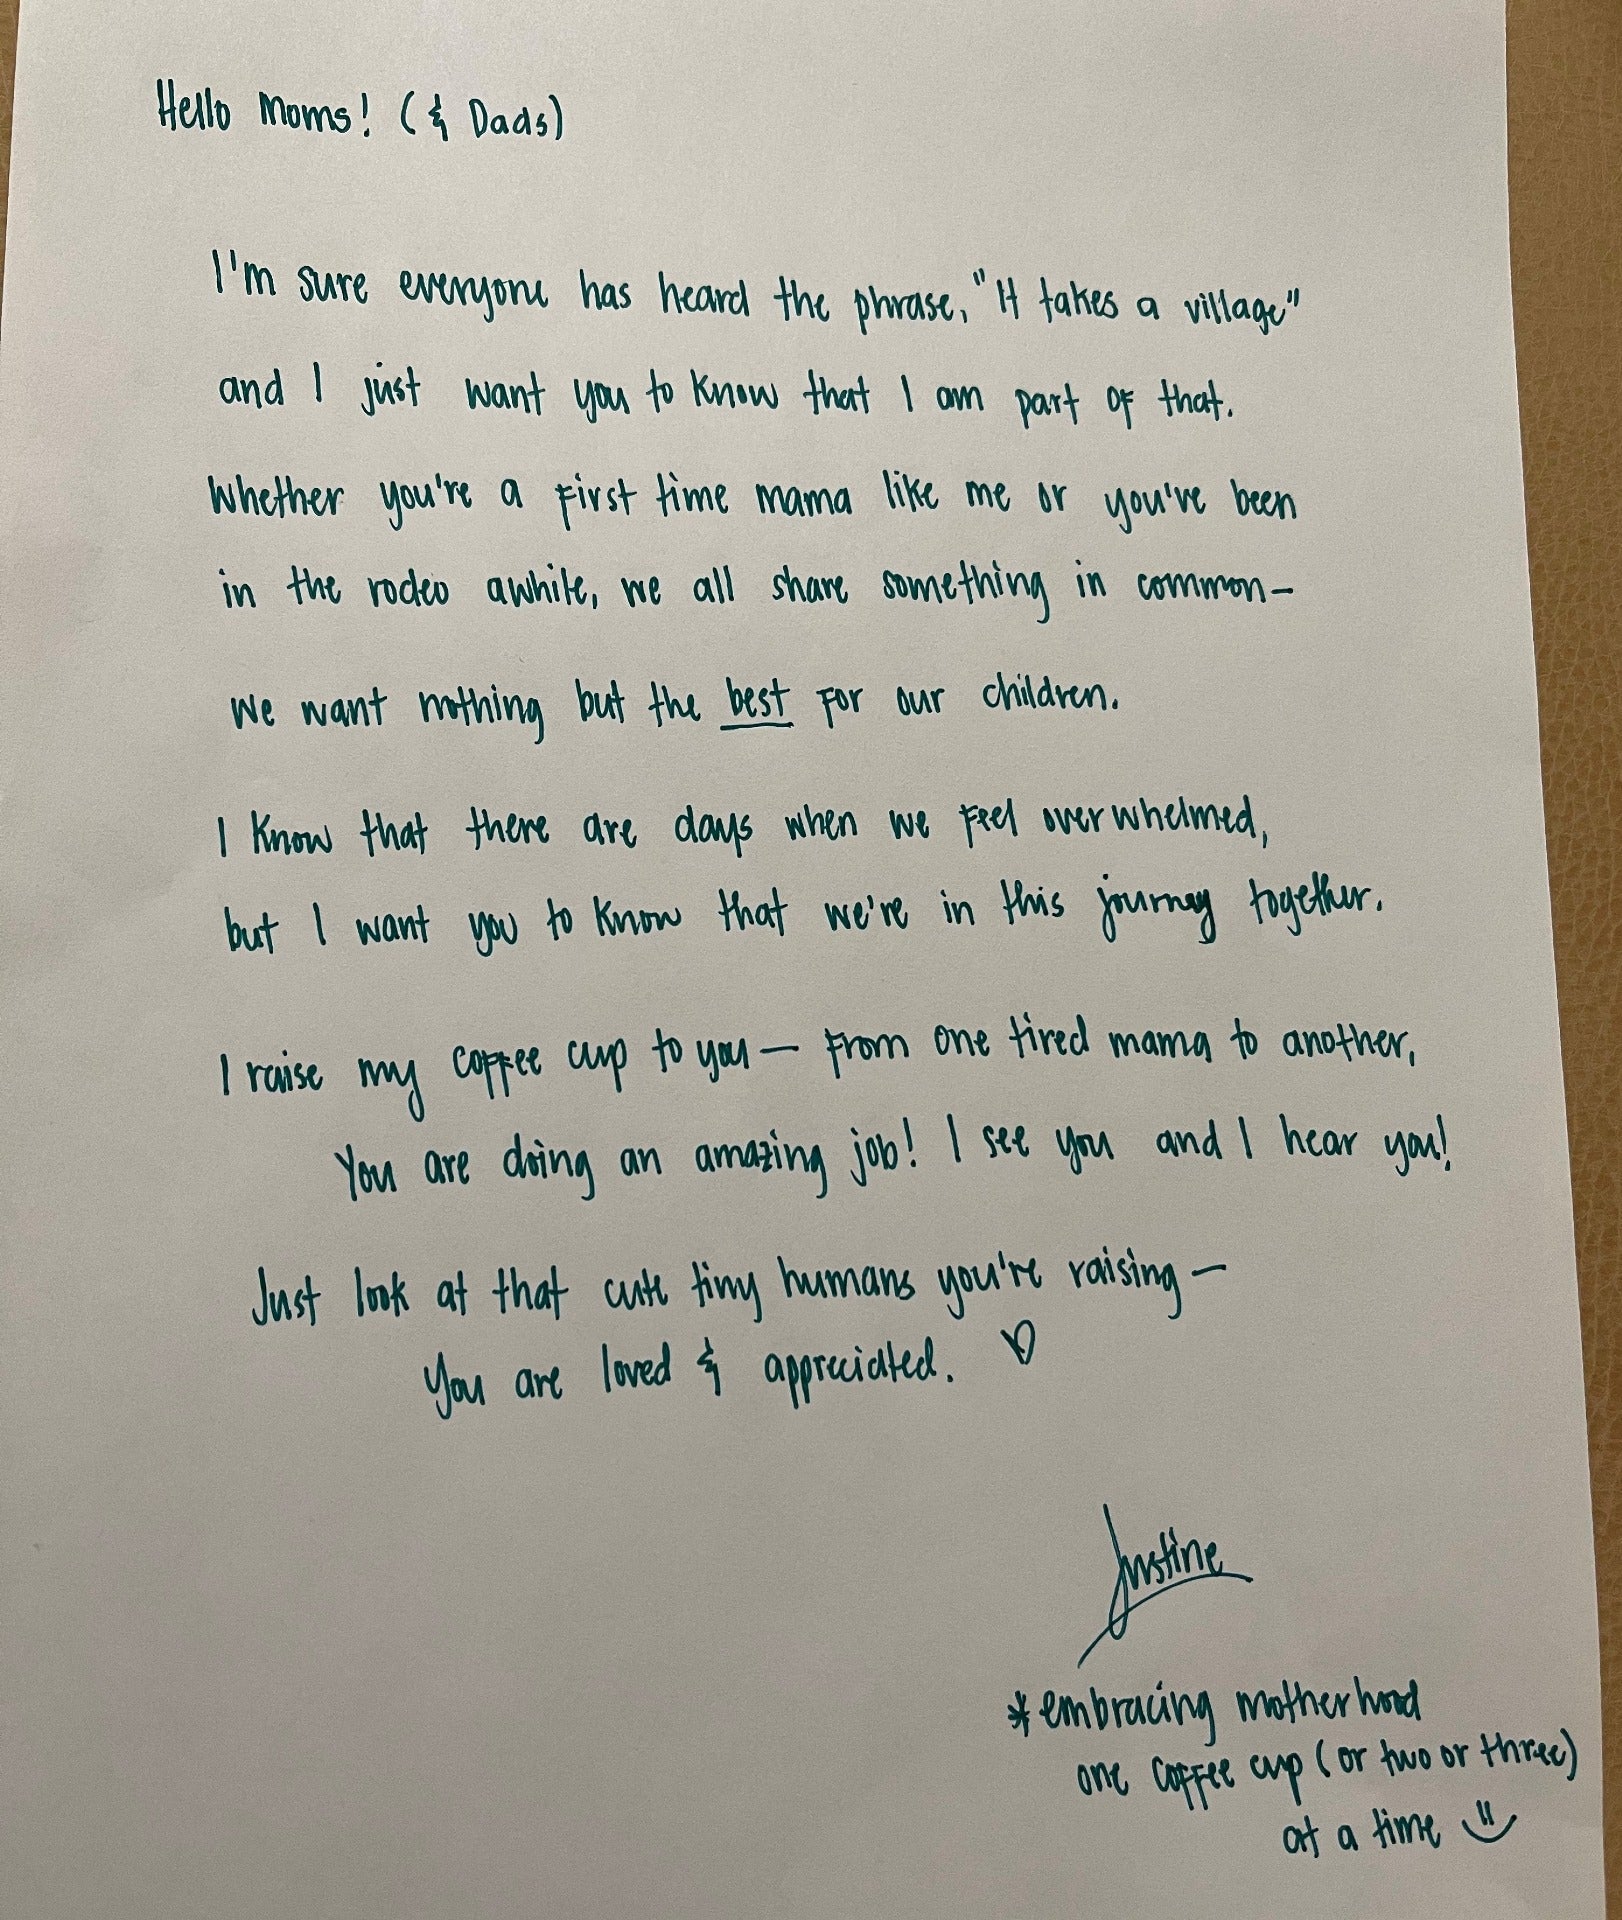 Hello Moms! (& Dads)
I'm sure everyone has heard the phrase, "It takes a village"
and I just want you to know that I am part of that.
Whether you're a first time mama like me or you've been
in the rodeo awhile, we all share something in common—
we want nothing but the best for our children.
I know that there are days when we feel overwhelmed,
but I want you to know that we're in this journey together.
I raise my coffee cup to you — from one tired mama to another,
You are doing an amazing job! I see you and I hear you!
Just look at that cute tiny humans you're raising —
You are loved & appreciated. ♡
Justine
*embracing motherhood
one coffee cup (or two or three)
at a time